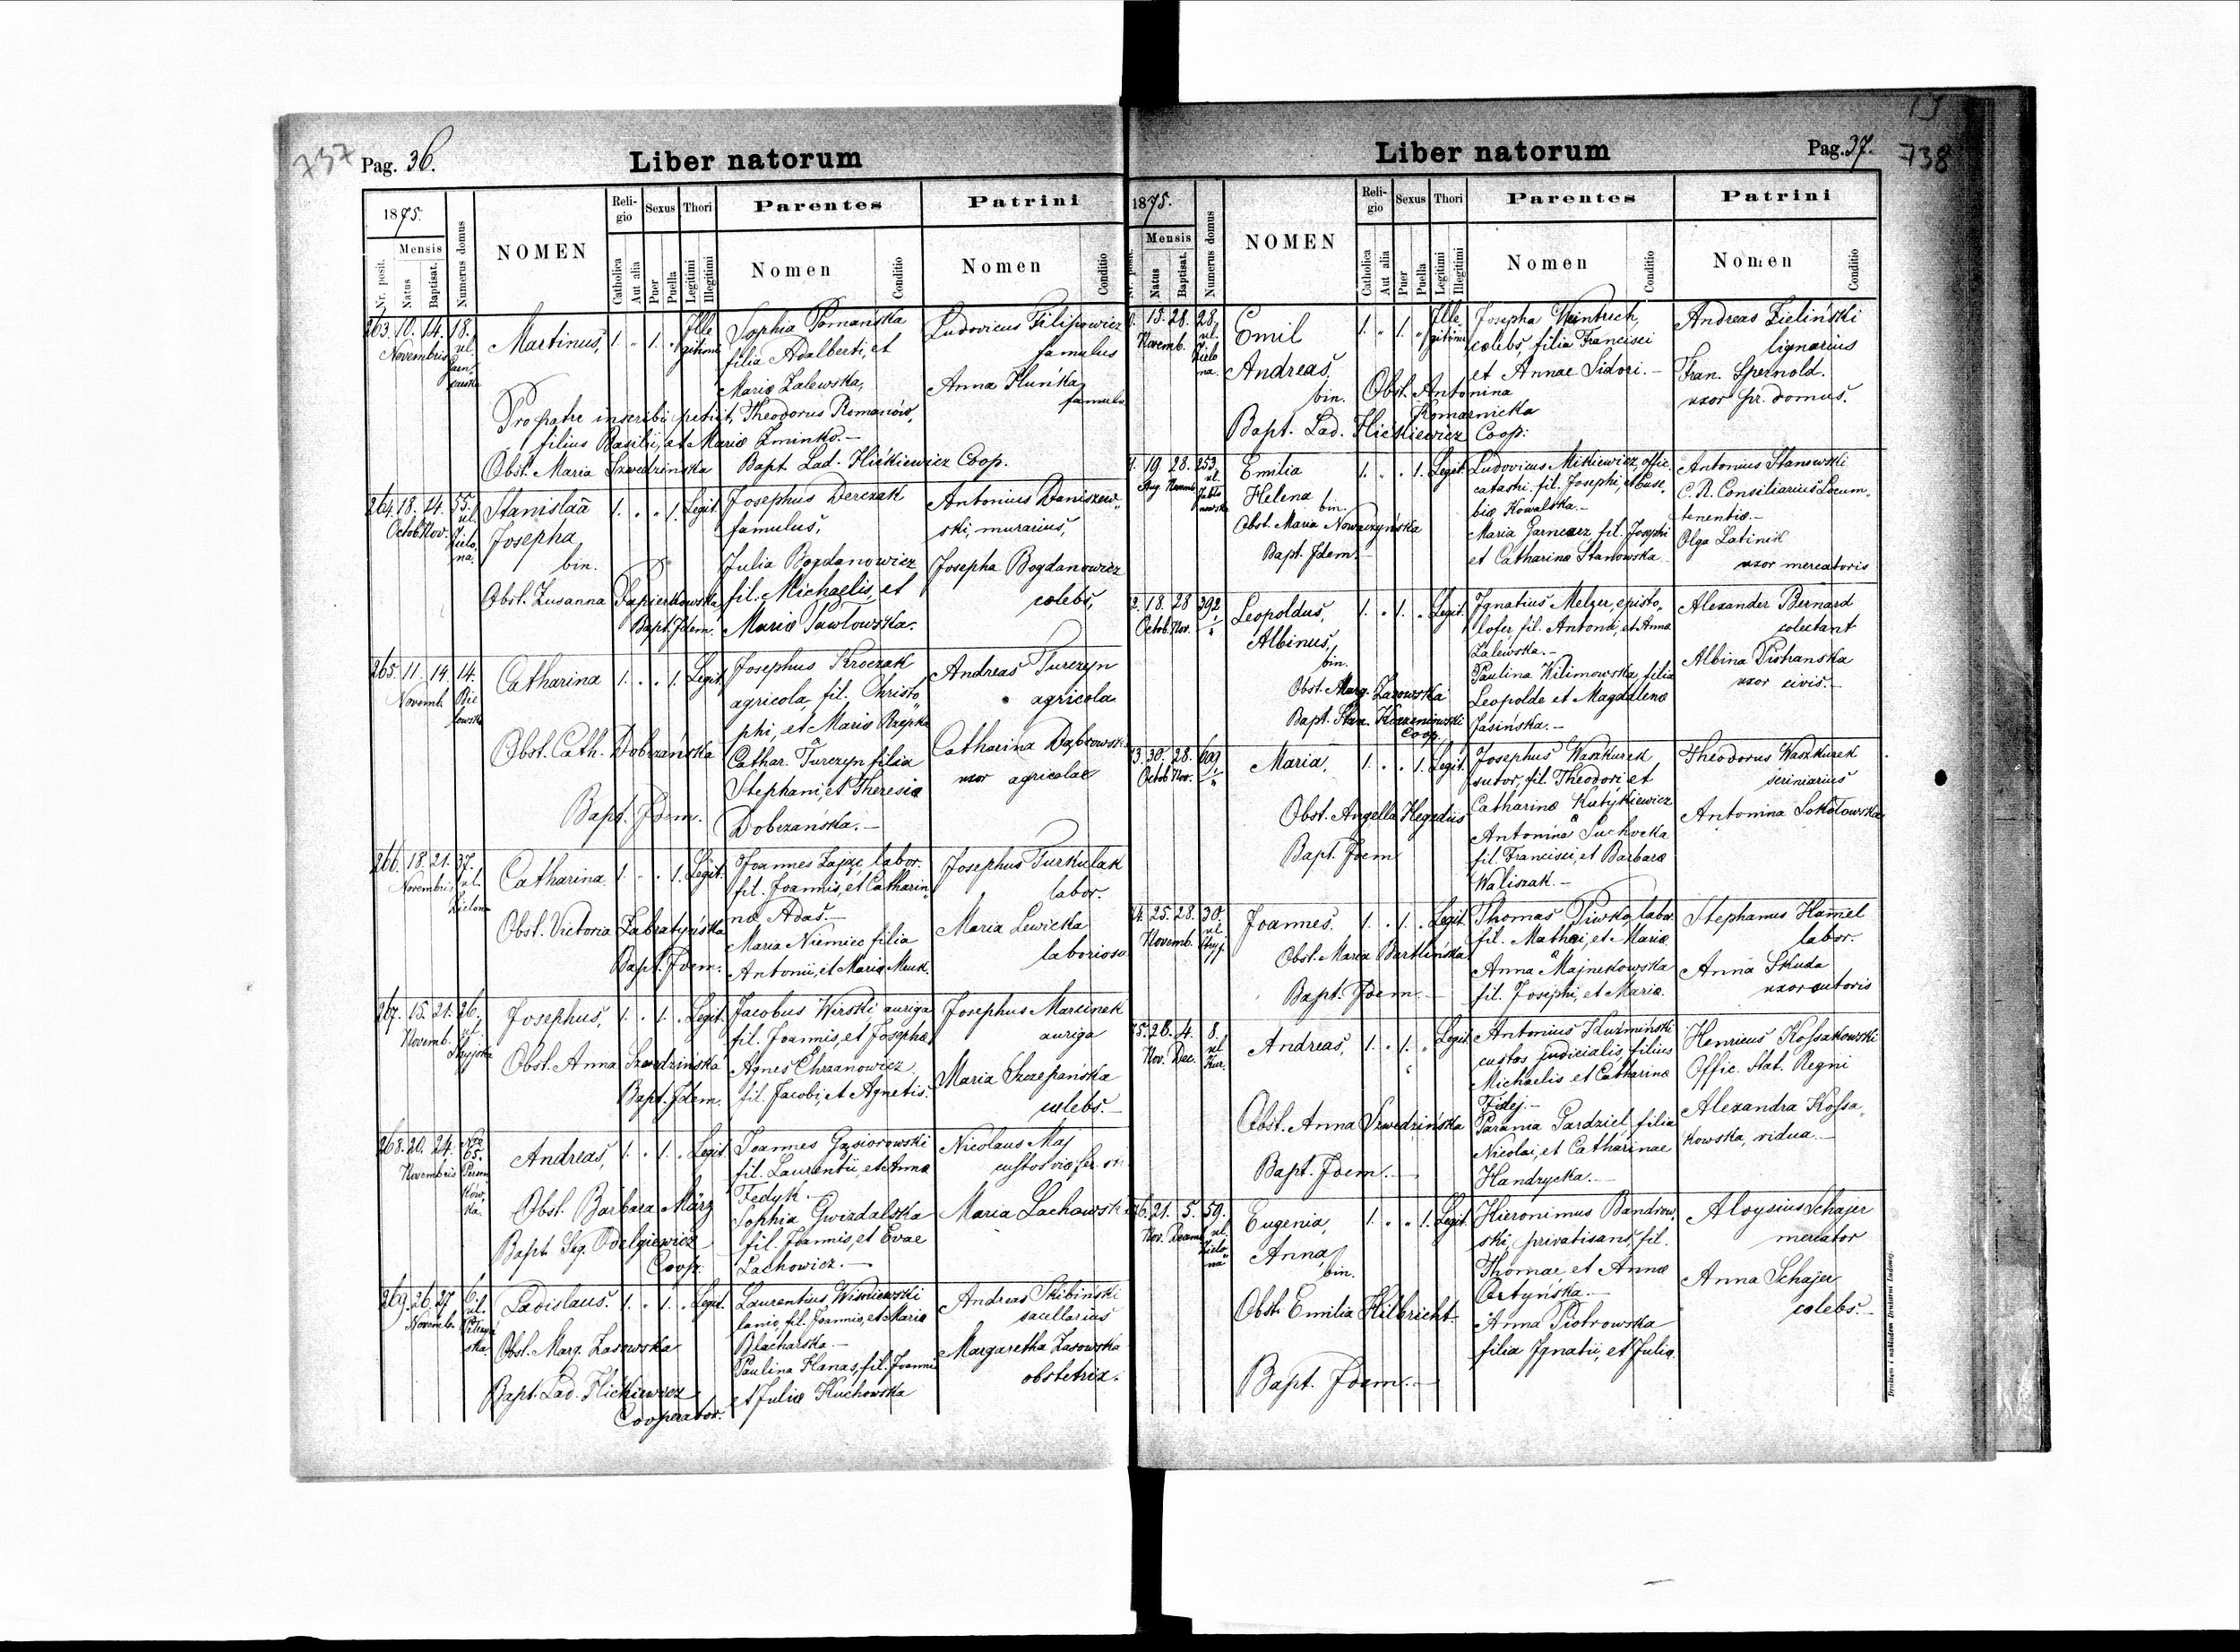 737
Pag. 36.
Liber natorum
1875.
Mensis
Nr. posit.
Natus
Baptisat.
Numerus domus
NOMEN
Religio
Catholica
Aut alia
Sexus
Puer
Puella
Thori
Legitimi
Illegitimi
Parentes
Nomen
Conditio
Patrini
Nomen
Conditio
263. 10. 14. 18.
Novembris ul.
Martinus, 1. " 1. " Ille
gitimi
Sophia Pomańska
filia Adalberti, et
Mariæ Zalewska,
Ludovicus Filipowicz
famulus
Anna Huńka
famula
Pro patre inscribi petiit, Theodorus Romanów,
filius Basilii, et Mariæ Zminko.—
Obst. Maria Szwedzińska Bapt. Lad. Hićkiewicz Coop.
264. 18. 14. 55.
Octob. Nov. ul.
Zielo
na.
Stanislaa
Josepha
bin.
1. " " 1. Legit.
Josephus Derczak
famulus,
Julia Bogdanowicz
fil. Michaelis, et
Mariæ Pawlowska.
Antonius Daniszew
ski, murarius,
Josepha Bogdanowicz
cœlebs,
Obst. Zusanna Papierkowska
Bapt. Idem.
265. 11. 14. 14.
Novemb.
Catharina 1. " " 1. Legit.
Josephus Kroczak
agricola, fil. Christo
phi, et Mariæ Rzepka
Cathar. Turczyn filia
Stephani, et Theresiæ
Dobrzańska.—
Andreas Turczyn
agricola
Catharina Dąbrowska
uxor agricolae
Obst. Cath. Dobrzańska
Bapt. Idem.
266. 18. 21. 37.
Novembris ul.
Zielona
Catharina 1. " " 1. Legit.
Joannes Zając, labor.
fil. Joannis, et Cathari
næ Adaś.—
Maria Niemiec filia
Antonii, et Mariæ Mruk.
Josephus Turkulak
labor.
Maria Lewicka
laboriosa
Obst. Victoria Zabratyńska
Bapt. Idem.
267. 15. 21. 26.
Novemb. ul.
Stryjska
Josephus, 1. " 1. " Legit.
Jacobus Wirski auriga
fil. Joannis, et Josephæ
Agnes Chrzanowicz
fil. Jacobi, et Agnetis.
Josephus Marcinek
auriga
Maria Szczepańska
cœlebs.—
Obst. Anna Szwedzińska
Bapt. Idem.
268. 20. 24.
Novembris
65.
Persen
ków
ka.
Andreas, 1. " 1. " Legit.
Joannes Gąsiorowski
fil. Laurentii, et Annæ
Fedyk.
Sophia Gwizdalska
fil. Joannis, et Evae
Lachowicz.—
Nicolaus Maj
custos viæ fer.
Maria Lachowska
Obst. Barbara März
Bapt. Sig. Odelgiewicz
Coop.
269. 26. 27. 6.
Novemb. ul.
Ladislaus. 1. " 1. " Legit.
Laurentius Wisniewski
lanio, fil. Joannis, et Mariæ
Blacharska.—
Paulina Hanas, fil. Joannis
et Juliæ Kuchowska
Andreas Skibiński
sacellarius
Margaretha Zasowska
obstetrix.
Obst. Marg. Zasowska
Bapt. Lad. Hićkiewicz
Cooperator.
Liber natorum
Pag. 37.
738
1875.
Mensis
Natus
Baptisat.
Numerus domus
NOMEN
Religio
Catholica
Aut alia
Sexus
Puer
Puella
Thori
Legitimi
Illegitimi
Parentes
Nomen
Conditio
Patrini
Nomen
Conditio
15. 28. 28.
Novemb. ul.
Zielo
na.
Emil
Andreas,
bin.
1. " 1. " Ille
gitimi
Josepha Weintrich,
cœlebs, filia Francisci
et Annae Sidori.—
Andreas Zieliński
lignarius
Fran. Spernold.
uxor pr. domus.
Obst. Antonina
Romarnicka
Bapt. Lad. Hićkiewicz Coop:
19 28. 253
Aug. Novemb. ul.
Emilia
Helena
bin.
1. " " 1. Legit.
Ludovicus Mikiewicz, offic.
catastri. fil. Josephi, et Euse
biæ Kowalska.—
Maria Garncarz, fil. Josephi
et Catharinæ Stanowska.
Antonius Stanowski
C. R. Consiliarius Locum
tenentiæ.—
Olga Latinik
uxor mercatoris
Obst. Maria Nowaczyńska
Bapt. Idem.—
18. 28 392
Octob. Nov.
Leopoldus,
Albinus,
bin.
1. " 1. " Legit.
Ignatius Melzer, episto
lofer, fil. Antonii, et Annæ
Zalewska.—
Paulina Wilimowska, filia
Leopoldi et Magdalenæ
Jasińska.—
Alexander Bernard
Albina Pistranska
uxor civis.—
Obst. Marg. Zasowska
Bapt. Stan. Korzeniowski
Coop.
30. 28. 609
Octob. Nov.
Maria, 1. " " 1. Legit.
Josephus Waszkurek
sutor, fil. Theodori, et
Catharinæ Kutykiewicz
Antonina Suchocka
fil. Francisci, et Barbaræ
Waliszak.—
Theodorus Waszkurek
scriniarius
Antonina Sokołowska
Obst. Angella Hegedüs
Bapt. Idem
25. 28. 30.
Novemb. ul.
Stryj.
Joannes. 1. " 1. " Legit.
Thomas Piwsko, labor.
fil. Mathæi, et Mariæ
Anna Majnekowska
fil. Josephi, et Mariæ.
Stephanus Hamel
labor.
Anna Skuda
uxor sutoris
Obst. Maria Bartlińska
Bapt. Idem.—
28. 4. 8.
Nov. Dec. ul
Andreas, 1. " 1. " Legit.
Antonius Kuzmiński
custos judicialis, filius
Michaelis et Catharinæ
Fidej.—
Parania Gardziel filia
Nicolai, et Catharinae
Handrycka.—
Henricus Kossakowski
Offic. Stat. Regni
Alexandra Kossa
kowska, vidua.—
Obst. Anna Szwedzińska
Bapt. Idem.—
21. 5. 59.
Nov. Decemb. ul.
Zielo
na
Eugenia,
Anna,
bin.
1. " " 1. Legit.
Hieronimus Bandrow
ski, privatisans, fil.
Thomae et Annæ
Ortyńska.—
Anna Piotrowska
filia Ignatii, et Juliæ.
Aloysius Schajer
mercator
Anna Schajer
cœlebs.—
Obst. Emilia Hilbricht.
Bapt. Idem.—